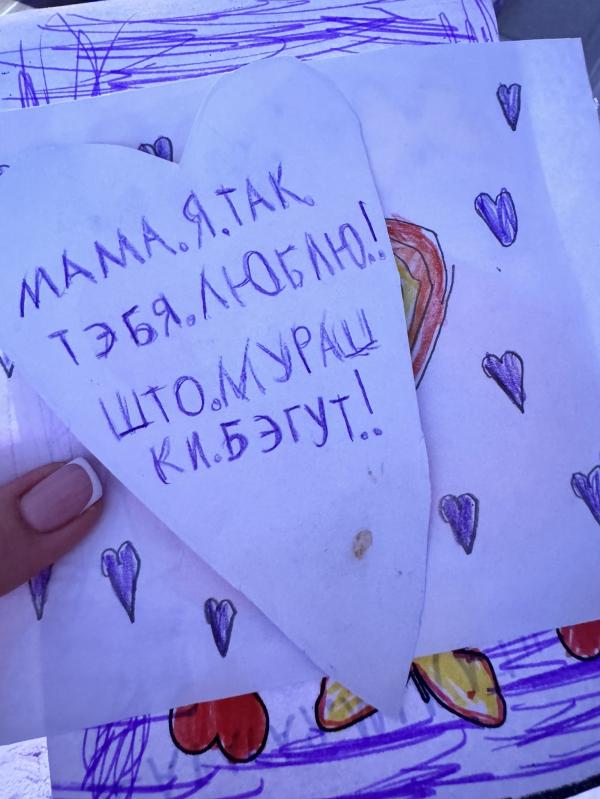 МАМА.Я.ТАК.
ТЭБЯ.ЛЮБЛЮ!.
ШТО.МУРАШ
КИ.БЭГУТ!.